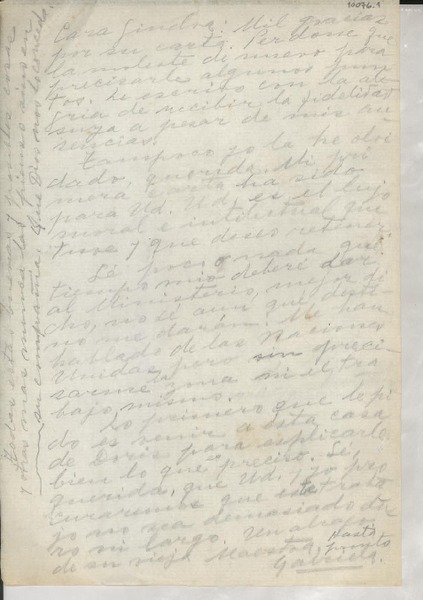 10076.1
Cara Gindra: Mil gracias
por su carta. Perdone que
la moleste de nuevo para
precisarle algunos pun-
tos. Le escribo con la ale-
gría de recibir la fidelidad
suya a pesar de mis au-
sencias.
Tampoco yo la he olvi-
dado, querida. Mi pri-
mera carta ha sido
para Ud. Ud. es el lujo
moral e intelectual que
tuve y que deseo retener.
Sé poco o nada que
tiempo mío deberé dar
al Ministerio, mejor di-
cho, no sé aun que desti-
no me darán. Me han
hablado de las Naciones
Unidas, pero sin preci-
sarme zona ni el tra-
bajo, mismo.
Lo primero que le pi-
do es venir a esta casa
de Doris para explicarle
bien lo que preciso. Sí,
querida, que Ud. y yo pro-
curaremos que este traba-
jo no sea demasiado du-
ro ni largo. Un abrazo
de su vieja Maestra, Hasta pronto
Gabriela.
su compañía. Que Dios nos lo conceda.